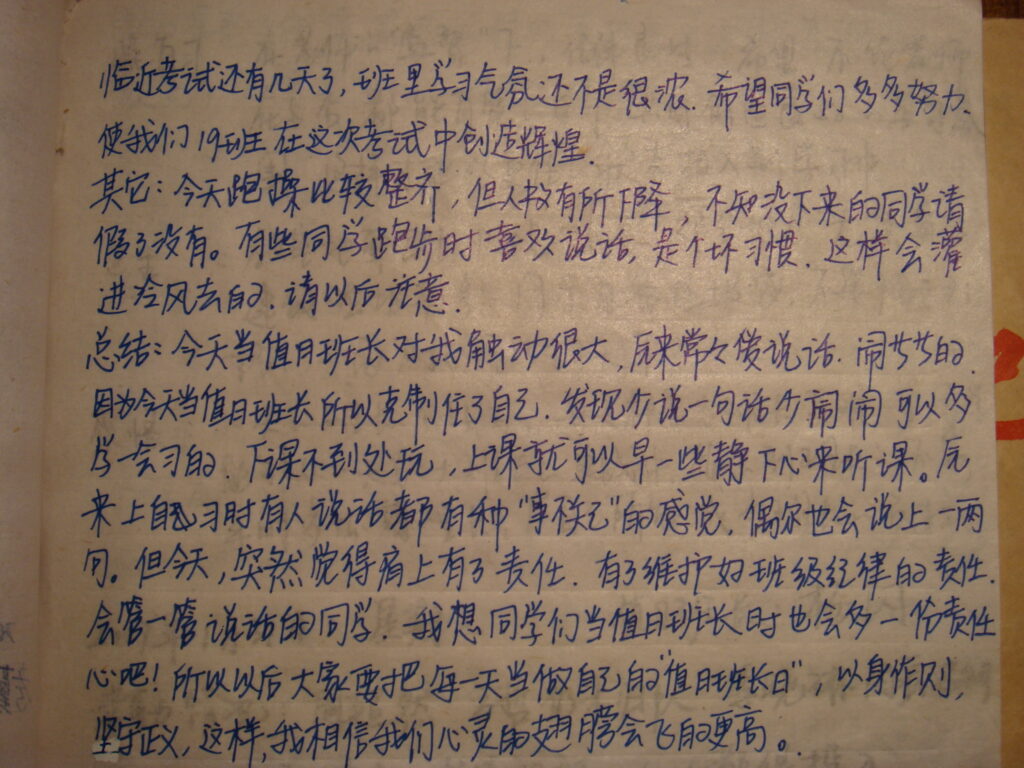 临近考试还有几天了,班里学习气氛还不是很浓.希望同学们多多努力.
使我们19班在这次考试中创造辉煌.
其它:今天跑操比较整齐,但人数有所下降,不知没下来的同学请
假了没有。有些同学跑步时喜欢说话,是个坏习惯.这样会灌
进冷风去的.请以后注意.
总结:今天当值日班长对我触动很大,后来常々侃说话.闹哄哄的.
因为今天当值日班长所以克制住了自己.发现少说一句话少闹闹可以多
学一会习的.下课不到处玩,上课就可以早一些静下心来听课。后
来上自习时有人说话都有种"事不关己"的感觉.偶尔也会说上一两
句。但今天,突然觉得肩上有了责任.有了维护好班级纪律的责任.
会管一管说话的同学.我想同学们当值日班长时也会多一份责任
心吧!所以以后大家要把每一天当做自己的"值日班长日",以身作则,
坚守正义,这样,我相信我们心灵的翅膀会飞的更高。